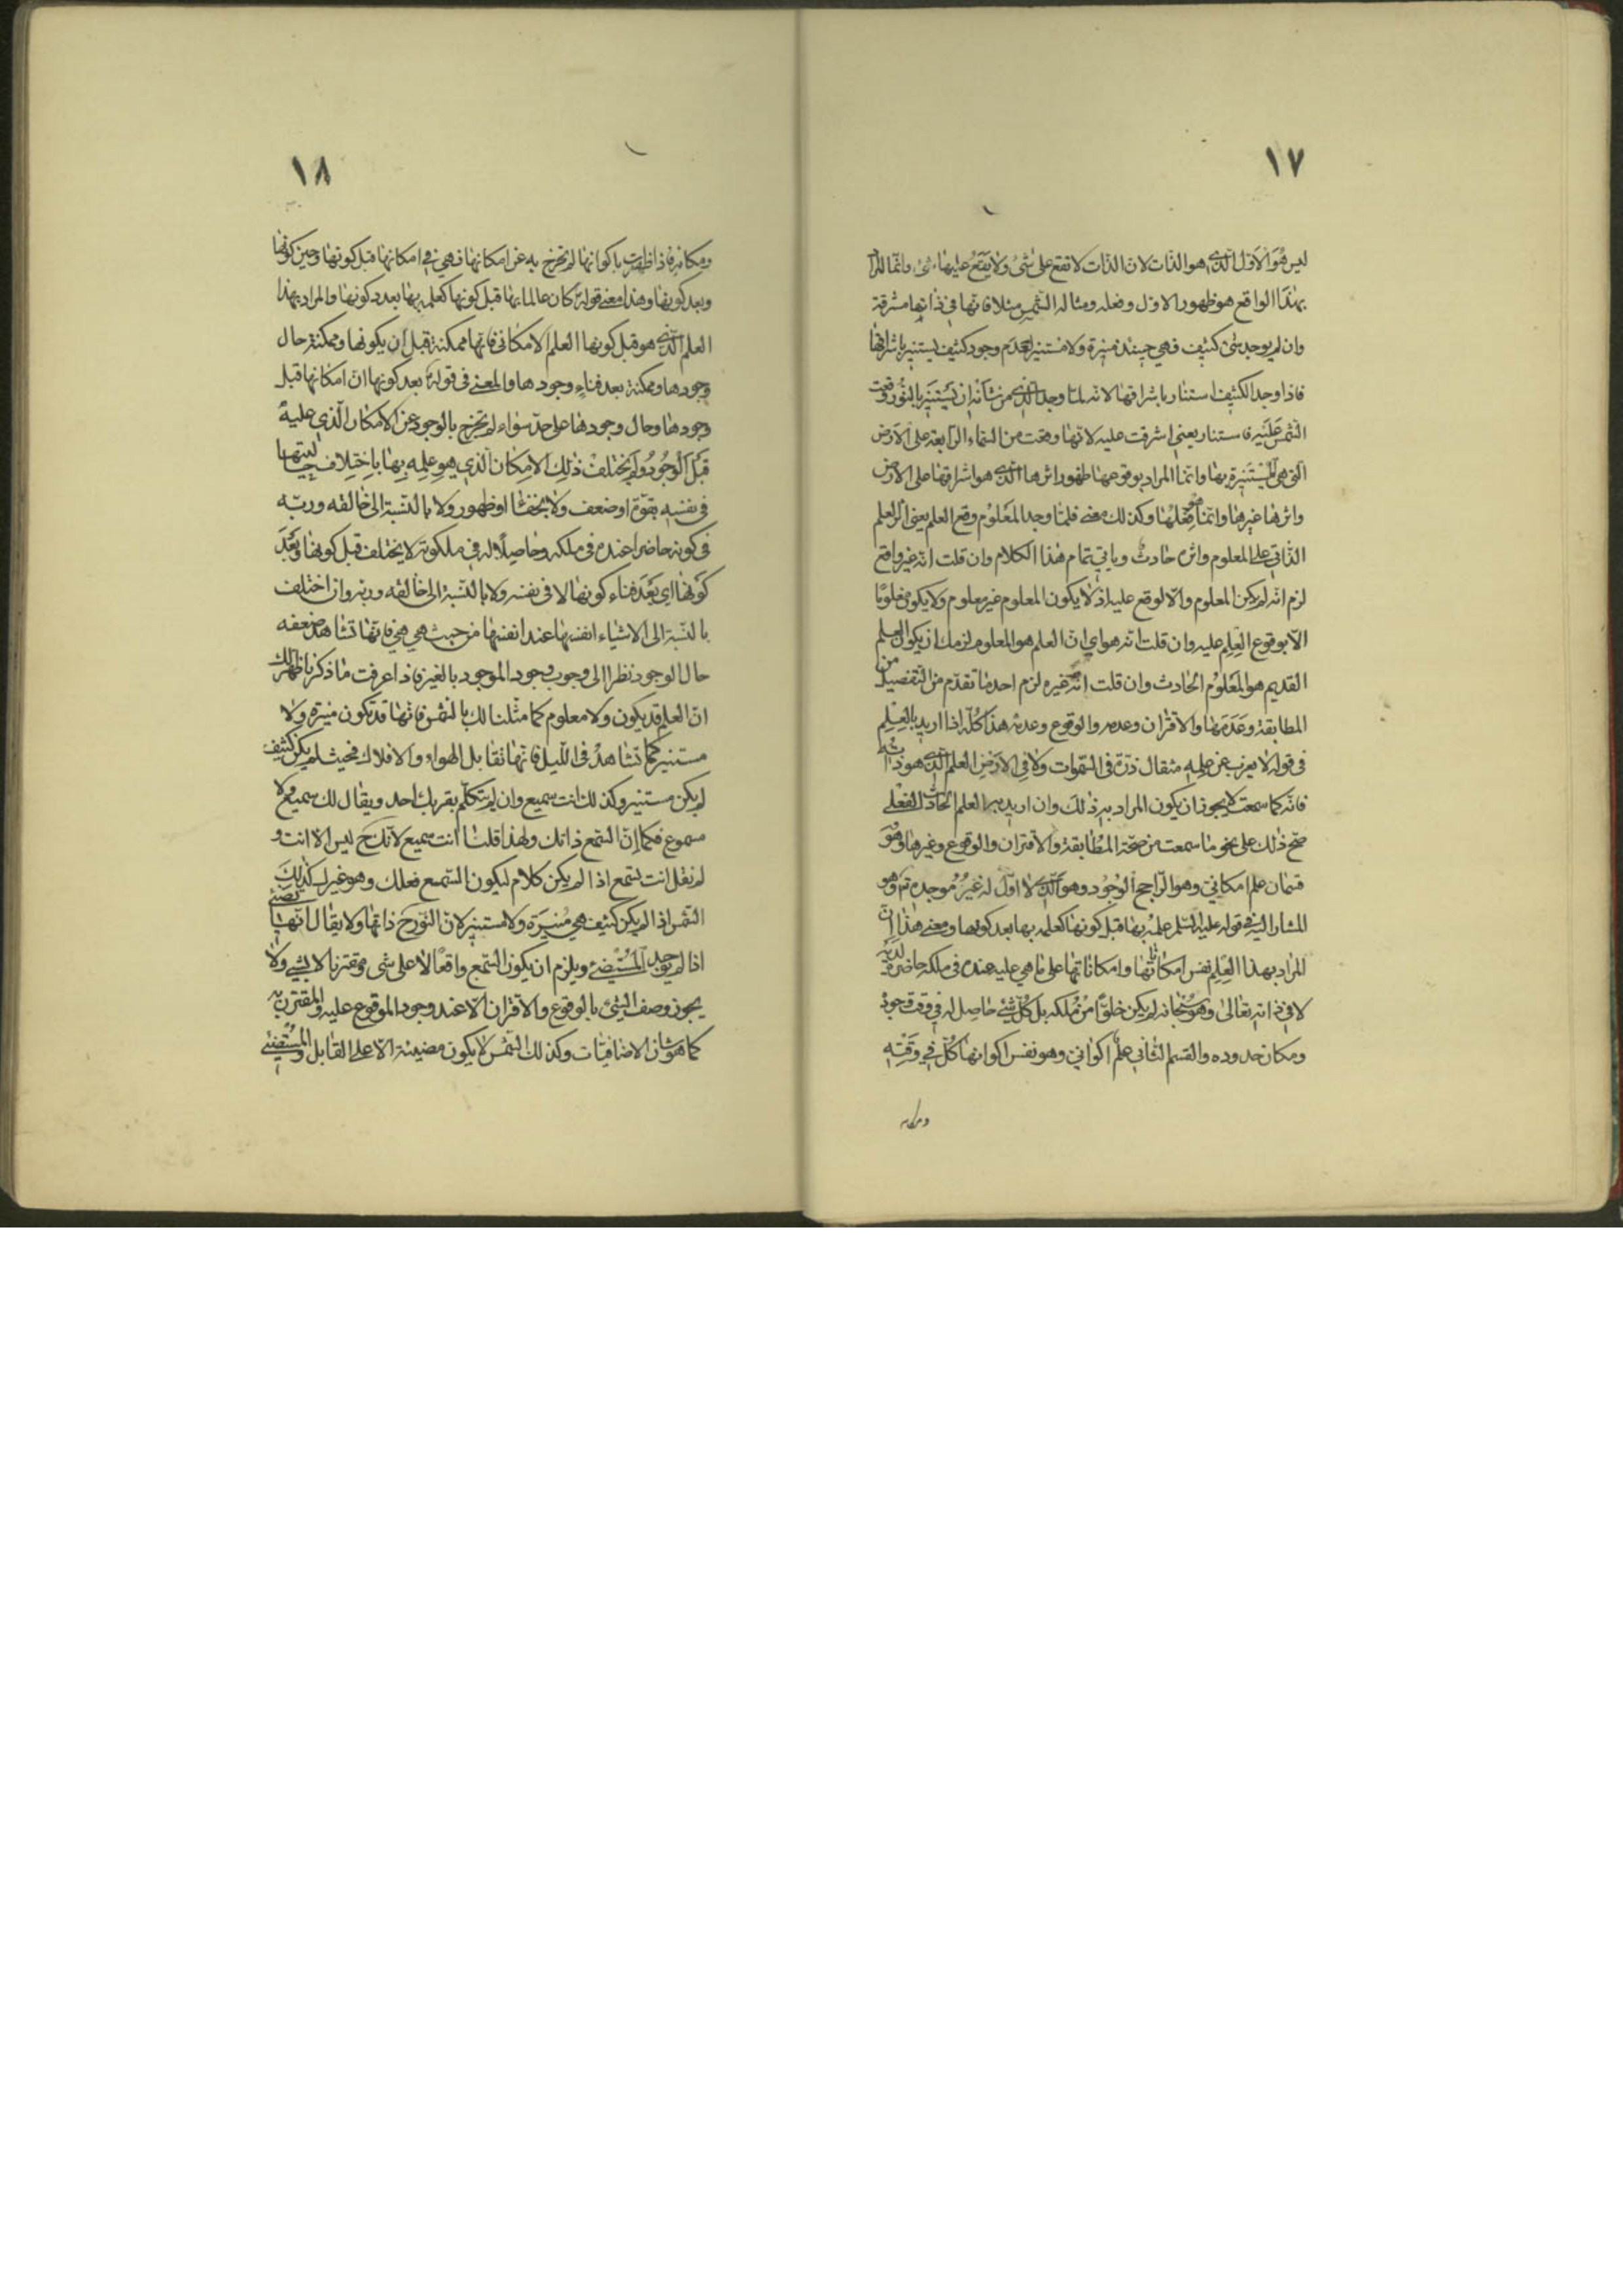 ١٧
ليس هو الاول الذي هو الذات لان الذات لا تقع على شئ ولا يقع عليها شئ وانما المراد
بهذا الواقع هو ظهور الاول وفعله ومثاله الشمس مثلا فانها في ذاتها مشرقة
وان لم يوجد شئ كثيف فهي حينئذ منيرة ولا مستنير لعدم وجود كثيف يستنير باشراقها
فاذا وجد الكثيف استنار باشراقها لانه لما وجد الذي من شأنه ان يستنير بالنور وقعت
الشمس عليه فاستنار يعني اشرقت عليه لا انها وقعت من السماء الرابعة على الارض
التي هي المستنيرة بها وانما المراد بوقوعها ظهور اثرها الذي هو اشراقها على الارض
واثرها غيرها وانما هو فعلها وكذلك معنى فلما وجد المعلوم وقع العلم يعني اثر العلم
الذاتي على المعلوم واثره حادث وياتي تمام هذا الكلام وان قلت انه غير واقع
لزم انه لم يكن المعلوم والا لوقع عليه اذ لا يكون المعلوم غير معلوم ولا يكون معلوما
الا بوقوع العلم عليه وان قلت انه هو اي ان العلم هو المعلوم لزمك ان يكون العلم
القديم هو المعلوم الحادث وان قلت انه غيره لزم احد ما تقدم من التفصيل من
المطابقة وعدمها والاقتران وعدمه والوقوع وعدمه هذا كله اذا اريد بالعلم
في قوله لا يعزب عن علمه مثقال ذرة في السموات ولا في الارض العلم الذي هو ذاته
فانه كما سمعت لا يجوز ان يكون المراد به ذلك وان اريد به العلم الحادث الفعلي
صح ذلك على نحو ما سمعت من صحة المطابقة والاقتران والوقوع وغيرها وهو
قسمان علم امكاني وهو الراجح الوجود وهو الذي لا اول له غير موجده تم وهو
المشار اليه في قوله عليه السلم علمه بها قبل كونها كعلمه بها بعد كونها ومعنى هذا ان
المراد بهذا العلم نفس امكاناتها وامكاناتها على ما هي عليه عنده في ملكه حاضرة لديه
لا في ذاته تعالى وهو سبحانه لم يكن خلوا من ملكه بل كل شئ حاصل له في وقت وجوده
ومكان حدوده والقسم الثاني علم اكواني وهو نفس اكوانها كل في وقته
ومكانه
١٨
ومكانه فاذا ظهرت باكوانها لم تخرج به عن امكانها فهي في امكانها قبل كونها وحين كونها
وبعد كونها وهذا معنى قوله كان عالما بها قبل كونها كعلمه بها بعد كونها والمراد بهذا
العلم الذي هو قبل كونها العلم الامكاني فانها ممكنة قبل ان يكونها وممكنة حال
وجودها وممكنة بعد فناء وجودها والمعنى في قوله بعد كونها ان امكانها قبل
وجودها وحال وجودها على حد سواء لم تخرج بالوجود عن الامكان الذي عليه
قبل الوجود ولم يختلف ذلك الامكان الذي هو علمه بها باختلاف حالتيها
في نفسه بقوة او ضعف ولا بخفاء او ظهور ولا بالنسبة الى خالقه وربه
في كونه حاضرا عنده في ملكه وحاصلا له في ملكوته لا يختلف قبل كونها وبعد
كونها اي بعد فناء كونها لا في نفسه ولا بالنسبة الى خالقه وربه وان اختلف
بالنسبة الى الاشياء انفسها عند انفسها من حيث هي هي فانها تشاهد ضعفه
حال الوجود نظرا الى وجوب وجود الموجود بالغير فاذا عرفت ما ذكرنا ظهر لك
ان العلم قد يكون ولا معلوم كما مثلنا لك بالشمس فانها قد تكون منيرة ولا
مستنير كما تشاهد في الليل فانها تقابل الهواء والافلاك فحيث لم يكن كثيف
لم يكن مستنير وكذلك انت سميع وان لم يتكلم بقربك احد ويقال لك سميع ولا
مسموع فكما ان السمع ذاتك ولهذا قلنا انت سميع لانك ح ليس الا انت و
لم نقل انت تسمع اذا لم يكن كلام ليكون السمع فعلك وهو غيرك كذلك
الشمس اذا لم يكن كثيف هي منيرة ولا مستنير لان النور ح ذاتها ولا يقال انها تضئ
اذا لم يوجد المستضئ ويلزم ان يكون السمع واقعا لا على شئ ومقترنا لا بشئ ولا
يجوز وصف الشئ بالوقوع والاقتران الا عند وجود الموقوع عليه والمقترن به
كما هو شان الاضافيات وكذلك الشمس لا يكون مضيئة الا على القابل والمستضئ